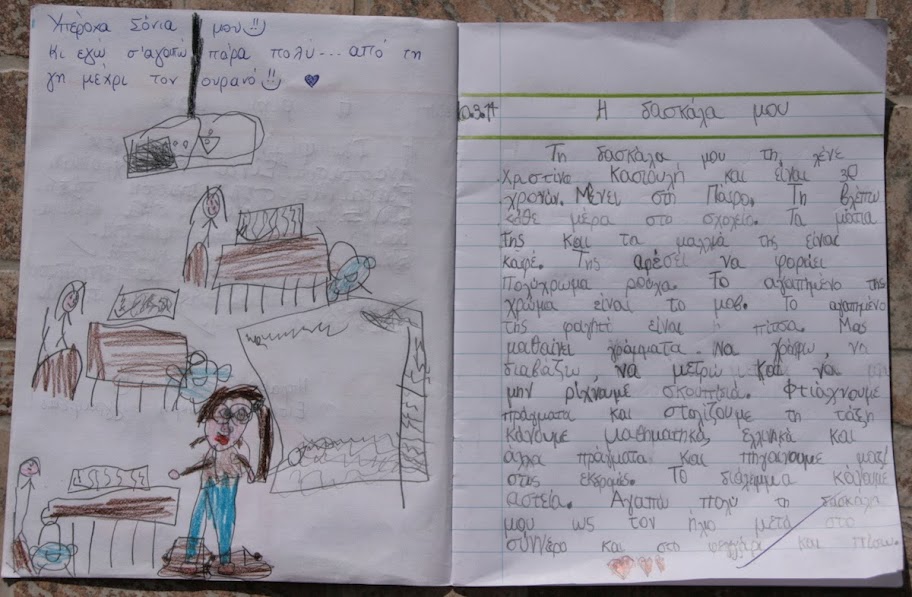 Υπέροχα Σόνια μου
Κι εγώ σ'αγαπώ πάρα πολύ... από τη
γη μέχρι τον ουρανό
Η δασκάλα μου
Τη δασκάλα μου τη λένε
Χριστίνα και είναι 30
χρονών. Μένει στη Πάφο. Τη βλέπω
κάθε μέρα στο σχολείο. Τα μάτια
της και τα μαλλιά της είναι
καφέ. Της αρέσει να φοράει
πολύχρωμα ρούχα. Το αγαπημένο της
χρώμα είναι το μοβ. Το αγαπημένο
της φαγητό είναι η πίτσα. Μας
μαθαίνει γράμματα. Να γράφω, να
διαβάζω, να μετρώ και να
μην ρίχνουμε σκουπίδια. Φτιάχνουμε
πράγματα και στολίζουμε τη τάξη
κάνουμε μαθηματικά, ελληνικά και
άλλα πράγματα και πηγαίνουμε μαζί
στις εκδρομές. Το διάλειμμα κάνουμε
αστεία. Αγαπώ πολύ τη δασκάλα
μου ως τον ήλιο μετά στο
σύννεφο και στο φεγγάρι και πίσω.